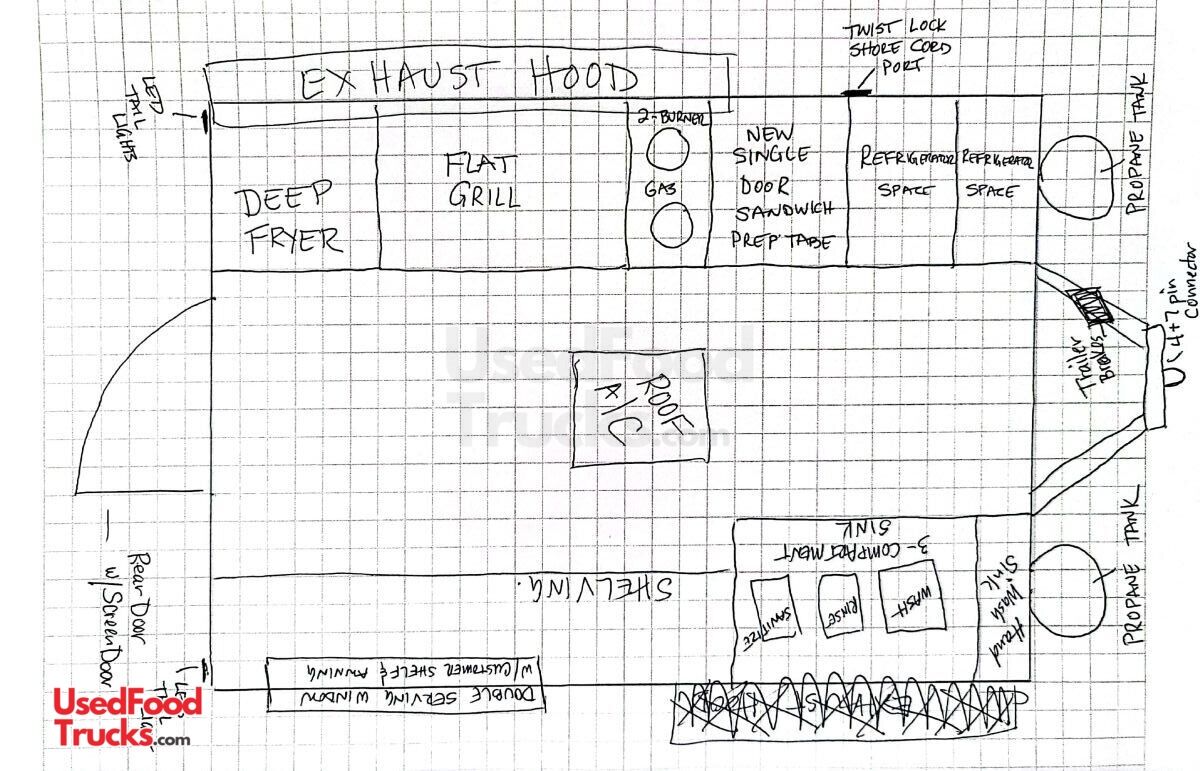 TWIST LOCK
SHORE CORD
PORT
EXHAUST HOOD
LED
TAIL
LIGHTS
DEEP
FRYER
FLAT
GRILL
2-BURNER
GAS
NEW
SINGLE
DOOR
SANDWICH
PREP TABE
REFRIGERATOR
SPACE
REFRIGERATOR
SPACE
PROPANE TANK
4+7 pin
Connector
Trailer
Brakes
ROOF
A/C
UsedFood
Trucks.com
3-COMPARTMENT
SINK
WASH
RINSE
SANITIZE
Hand
Wash
Sink
PROPANE TANK
SHELVING.
Rear Door
w/Screen Door
DOUBLE SERVING WINDOW
W/CUSTOMER SHELF & AWNING
UsedFood
Trucks.com